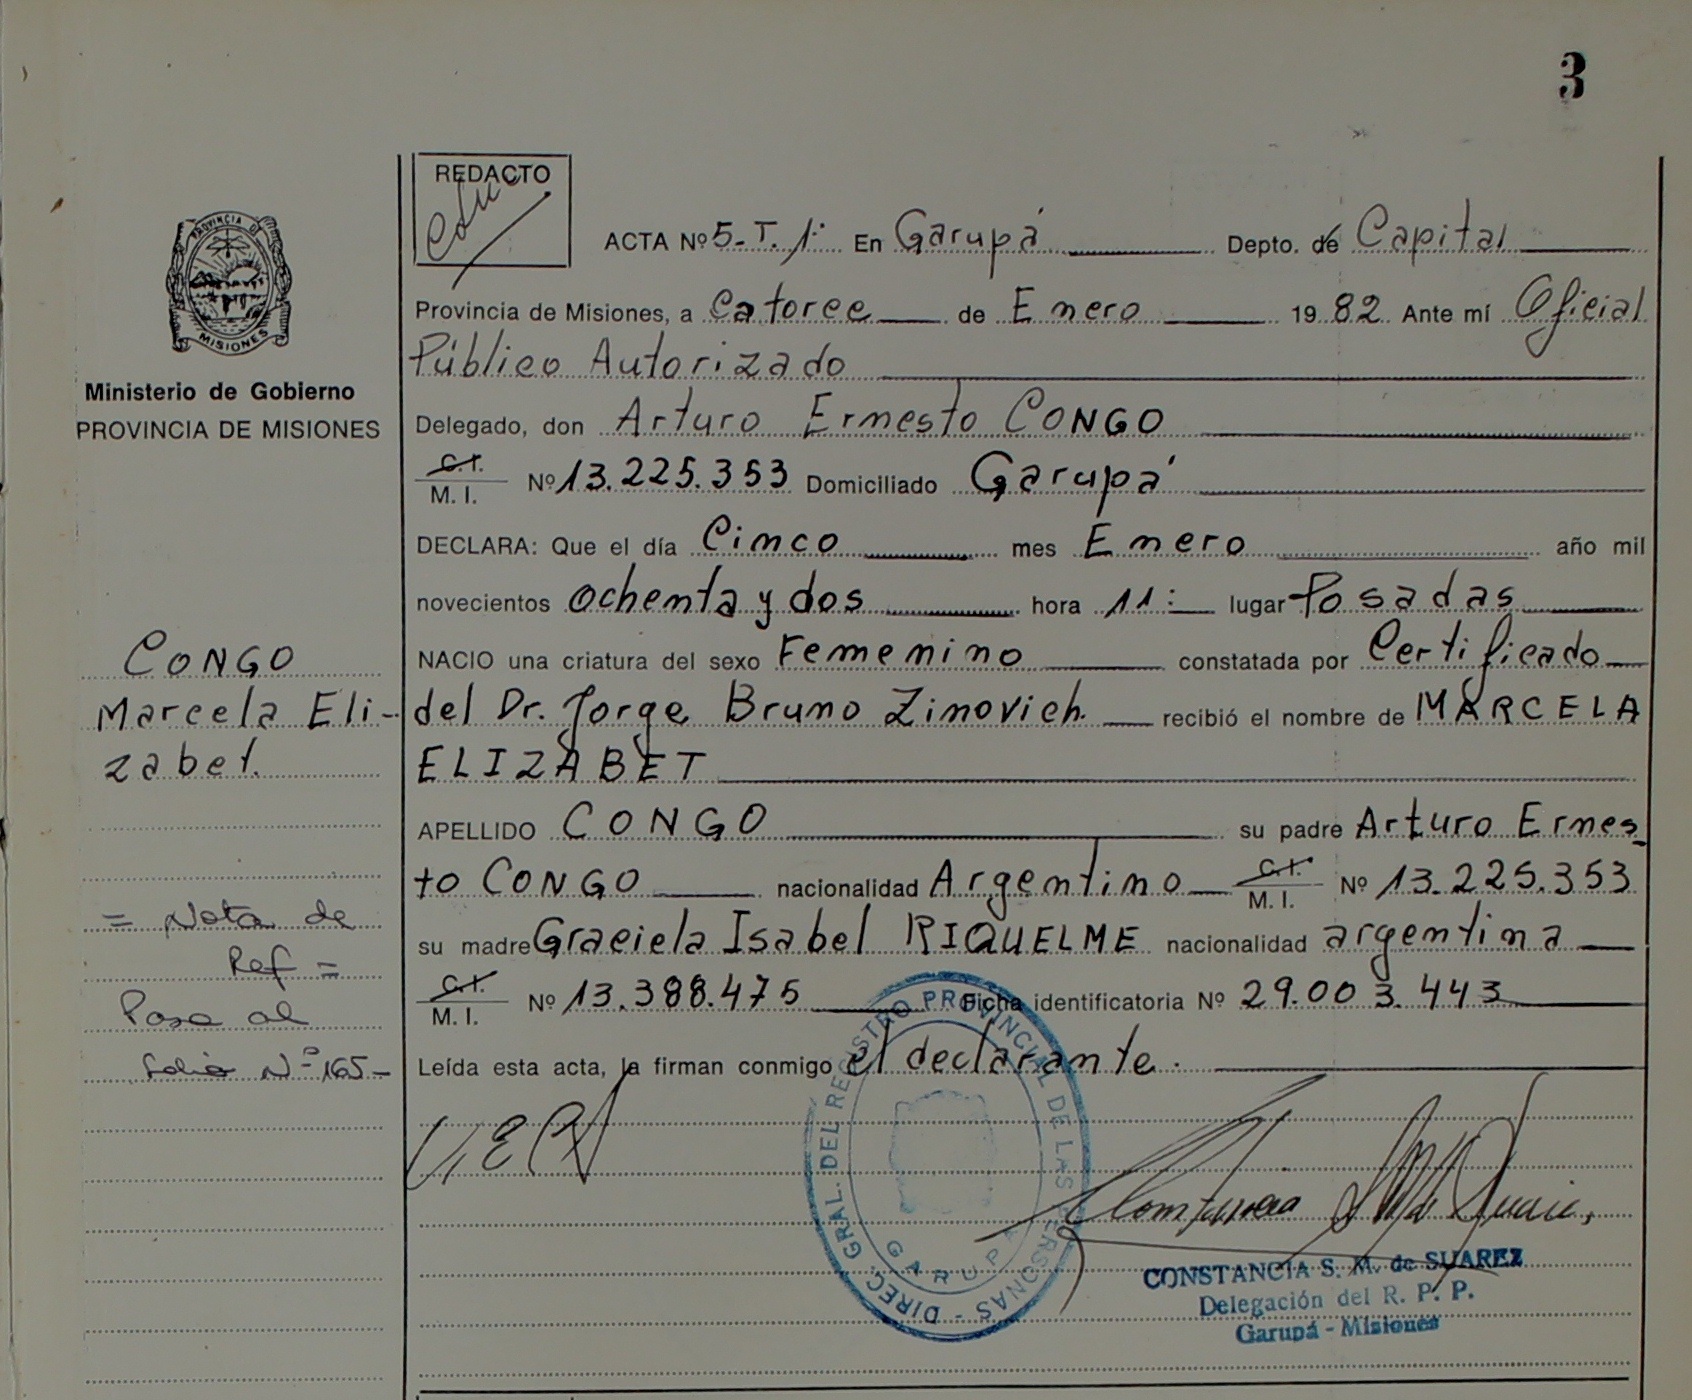 3
REDACTO
ACTA Nº 5-T. 1º En Garupá Depto. de Capital
Provincia de Misiones, a Catorce de Enero 1982. Ante mí Oficial
Público Autorizado
Delegado, don Arturo Ernesto CONGO
C.I.
M. I. Nº 13.225.353 Domiciliado Garupá
DECLARA: Que el día Cinco mes Enero año mil
novecientos Ochenta y dos hora 11: lugar Posadas
NACIO una criatura del sexo Femenino constatada por Certificado
del Dr. Jorge Bruno Zinovich. recibió el nombre de MARCELA
ELIZABET
APELLIDO CONGO su padre Arturo Ernes
to CONGO nacionalidad Argentino C.I. M. I. Nº 13.225.353
su madre Graciela Isabel RIQUELME nacionalidad argentina
C.I.
M. I. Nº 13.388.475 Ficha identificatoria Nº 29.003.443
Leída esta acta, la firman conmigo el declarante.
PROVINCIA DE
MISIONES
Ministerio de Gobierno
PROVINCIA DE MISIONES
CONGO
Marcela Eli-
zabet.
= Nota de
Ref =
Pasa al
folio Nº 165-
DIREC. GRAL. DEL REGISTRO PROVINCIAL DE LAS PERSONAS -
GARUPA
CONSTANCIA S. M. de SUAREZ
Delegación del R. P. P.
Garupá - Misiones